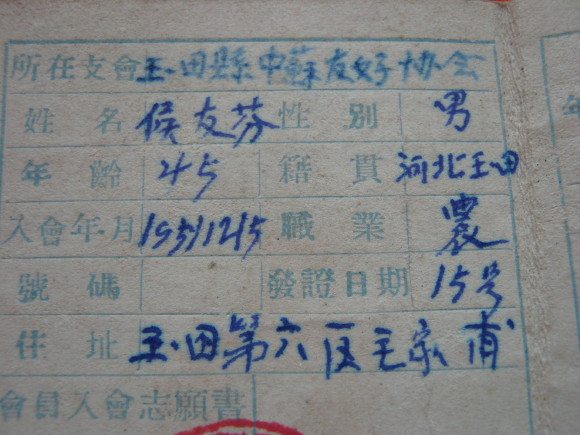 所在支會 玉田縣中蘇友好协会
姓名 侯友芬 性別 男
年齡 45 籍貫 河北玉田
入會年月 19511215 職業 農
號碼 發證日期 15号
住址 玉田第六区王家甫
會員入會志願書
年